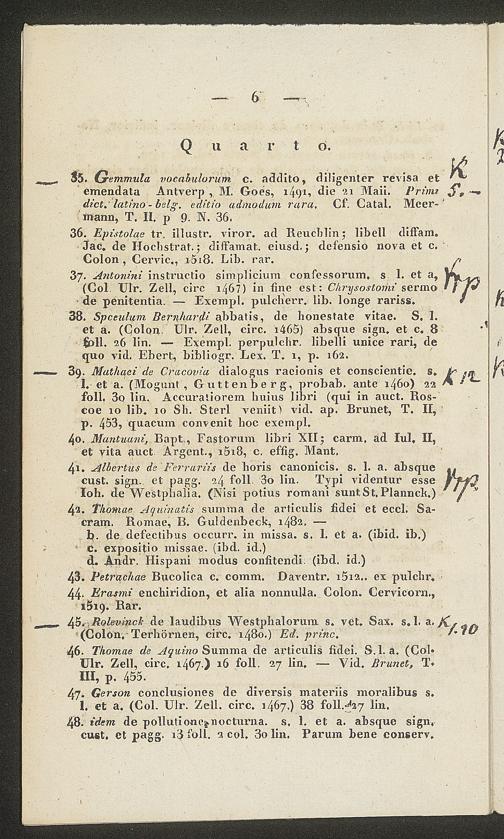 — 6 —
Quarto.
35. Gemmula vocabulorum c. addito, diligenter revisa et
emendata Antverp, M. Goes, 1491, die 21 Maii. Prims
dict. latino-belg. editio admodum rara. Cf. Catal. Meer-
mann, T. II. p 9. N. 36.
K
5.-
36. Epistolae tr. illustr. viror. ad Reuchlin; libell diffam.
Jac. de Hochstrat.; diffamat. eiusd.; defensio nova et c.
Colon, Cervic., 1518. Lib. rar.
37. Antonini instructio simplicium confessorum. s l. et a,
(Col. Ulr. Zell, circ 1467) in fine est: Chrysostomi sermo
de penitentia. — Exempl. pulcherr. lib. longe rariss.
38. Speeulum Bernhardi abbatis, de honestate vitae. S. l.
et a. (Colon. Ulr. Zell, circ. 1465) absque sign. et c. 8
foll. 26 lin. — Exempl. perpulchr. libelli unice rari, de
quo vid. Ebert, bibliogr. Lex. T. 1, p. 162.
39. Mathaei de Cracovia dialogus racionis et conscientie. s.
l. et a. (Mogunt, Guttenberg, probab. ante 1460) 22
foll. 30 lin. Accuratiorem huius libri (qui in auct. Ros-
coe 10 lib. 10 Sh. Sterl veniit) vid. ap. Brunet, T. II,
p. 453, quacum convenit hoc exempl.
K 12
40. Mantuani, Bapt., Fastorum libri XII; carm. ad Iul. II,
et vita auct Argent., 1518, c. effig. Mant.
41. Albertus de Ferrariis de horis canonicis. s. l. a. absque
cust. sign. et pagg. 24 foll. 30 lin. Typi videntur esse
Ioh. de Westphalia. (Nisi potius romani sunt St. Plannck.)
42. Thomae Aquinatis summa de articulis fidei et eccl. Sa-
cram. Romae, B. Guldenbeck, 1482. —
b. de defectibus occurr. in missa. s. l. et a. (ibid. ib.)
c. expositio missae. (ibd. id.)
d. Andr. Hispani modus confitendi. (ibd. id.)
43. Petrachae Bucolica c. comm. Daventr. 1512.. ex pulchr.
44. Erasmi enchiridion, et alia nonnulla. Colon. Cervicorn.,
1519. Rar.
45. Rolevinck de laudibus Westphalorum s. vet. Sax. s. l. a.
(Colon. Terhörnen, circ. 1480.) Ed. princ.
K
1.10
46. Thomae de Aquino Summa de articulis fidei. S. l. a. (Col.
Ulr. Zell, circ. 1467.) 16 foll. 27 lin. — Vid. Brunet, T.
III, p. 455.
47. Gerson conclusiones de diversis materiis moralibus s.
l. et a. (Col. Ulr. Zell. circ. 1467.) 38 foll. 27 lin.
48. idem de pollutione nocturna. s. l. et a. absque sign.
cust. et pagg. 13 foll. 2 col. 30 lin. Parum bene conserv.